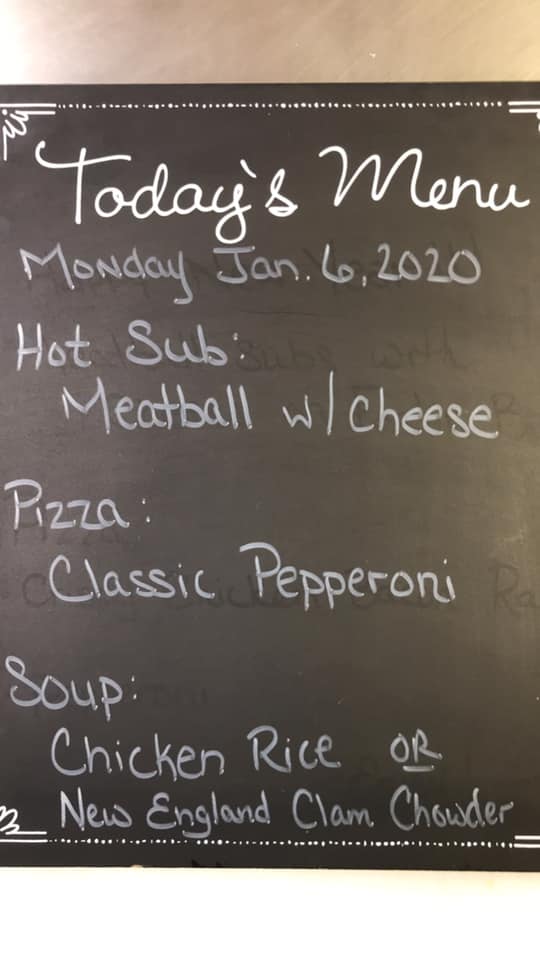 Today's Menu
Monday Jan. 6, 2020
Hot Sub:
Meatball w/ Cheese
Pizza:
Classic Pepperoni
Soup:
Chicken Rice OR
New England Clam Chowder